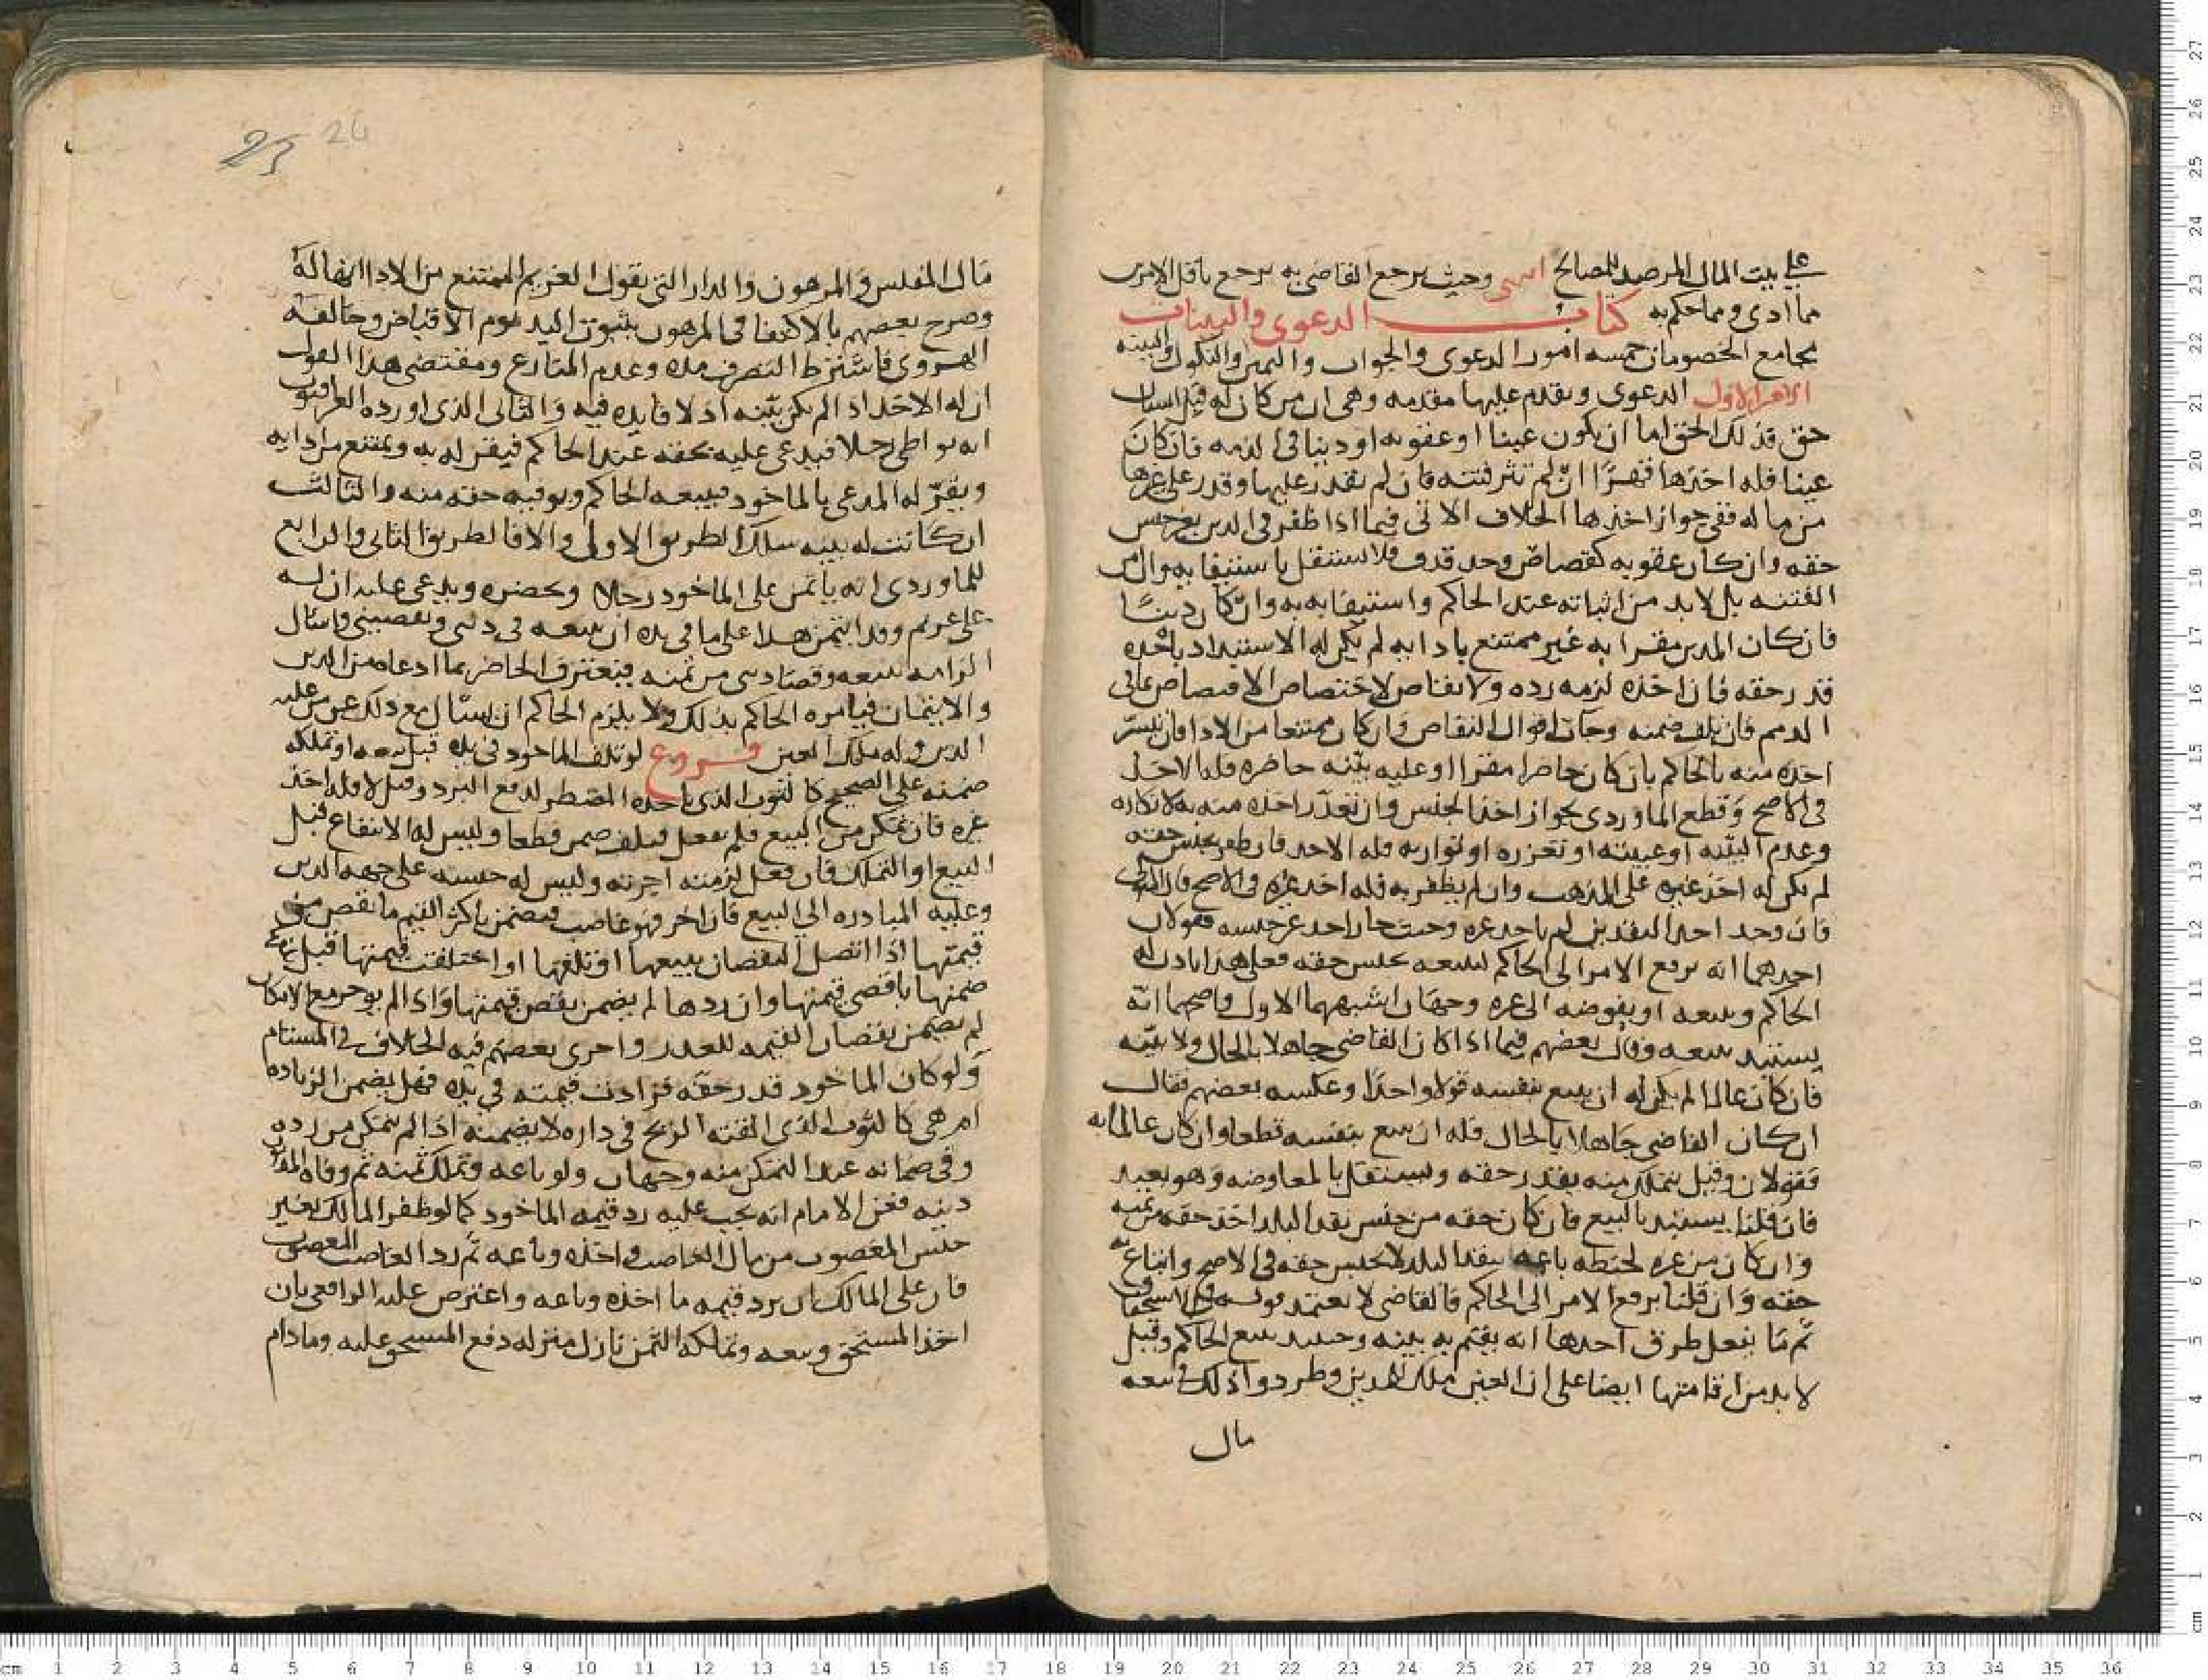 على بيت المال المرصد للمصالح انتهى وحيث يرجع القاضي به يرجع باقل الامرين
مما ادى ومما حكم به كتاب الدعوى والبينات
مجامع الخصومات خمسه امور الدعوى والجواب واليمين والنكول والبينه
الامر الاول الدعوى ونقدم عليها مقدمه وهي ان من كان له قبل انسان
حق فذلك الحق اما ان يكون عينا او عقوبه او دينا في الذمه فان كان
عينا فله اخذها قهرًا ان لم تثر فتنه فان لم يقدر عليها وقدر على غيرها
من ماله ففي جواز اخذها الخلاف الاتي فيما اذا ظفر في الدين بغير جنس
حقه وان كان عقوبه كقصاص وحد قذف فلا يستقل باستيفايه وان امن
الفتنه بل لا بد من اثباته عند الحاكم واستيفايه به وان كان دينًا
فان كان المدين مقرا به غير ممتنع بادايه لم يكن له الاستبداد باخذه
قدر حقه فان اخذه لزمه رده ولا تقاص لاختصاص الاقتصاص بما في
الذمم فان تلف ضمنه وجات اقوال التقاص وان كان ممتنعا من الادا فان تيسر
اخذه منه بالحاكم بان كان حاضرا مقرا او عليه بينه حاضره فله الاخذ
في الاصح وقطع الماوردي بجواز اخذ الجنس وان تعذر اخذه منه به لانكاره
وعدم البينه او غيبته او تعززه او تواريه فله الاخذ فان ظفر بجنس حقه
لم يكن له اخذ غيره على المذهب وان لم يظفر به فله اخذ غيره في الاصح
فان وجد احد النقدين لم ياخذ غيره وحيث جاز اخذ غير جنسه فقولان
احدهما انه يرفع الامر الى الحاكم ليبيعه بجنس حقه فعلى هذا ياذن له
الحاكم وبيعه او يفوضه الى غيره وجهان اشبههما الاول واصحهما انه
يستبد ببيعه وقال بعضهم فيما اذا كان القاضي جاهلا بالحال ولا بينه
فان كان عالما لم يكن له ان يبيع بنفسه قولا واحدًا وعكسه بعضهم فقال
ان كان القاضي جاهلا بالحال فله ان يبيع بنفسه قطعا وان كان عالما به
فقولان وقيل يتملك منه بقدر حقه ويستقل بالمعاوضه وهو بعيد
فان قلنا يستبد بالبيع فان كان حقه من جنس نقد البلد اخذ حقه من ثمنه
وان كان من غيره لحنطه باعه بنقد البلد لا بجنس حقه في الاصح وابتاع به
حقه وان قلنا يرفع الامر الى الحاكم فالقاضي لا يعتمد قوله في استحقاق
ثم ما يفعل طرق احدها انه يقيم به بينه وحينيذ يبيع الحاكم وقيل
لا بد من اقامتها ايضا على ان العين ملك المدين وطردوا ذلك في بيعه
مال
مال المفلس والمرهون والدار التي يقول الغريم الممتنع من الادا انها له
وصرح بعضهم بالاكتفا في المرهون بثبوت اليد يوم الاقباض وخالفه
الهروي فاشترط التصرف مده وعدم المنازع ومقتضى هذا القول
ان له الاخذ اذا لم يكن بينه اذ لا فايده فيه والثاني الذي اورده العراقيون
انه يواطى رجلا فيدعي عليه بحقه عند الحاكم فيقر له به ويمتنع من ادايه
ويقر له المدعي بالماخوذ فيبيعه الحاكم ويوفيه حقه منه والثالث
ان كانت له بينه سلك الطريق الاول والا فالطريق الثاني والرابع
للماوردي انه ياتمن على الماخوذ رجلا ويحضره ويدعي عليه ان له
على غريم وقد ايتمن هذا على ما في يده ان يبيعه في ديني ويقضيني واسال
الزامه ببيعه وقضا ديني من ثمنه فيعترف الحاضر بما ادعاه من الدين
والايتمان فيامره الحاكم بذلك ولا يلزم الحاكم ان يسال مع ذلك عن من عليه
الدين وله ملك العين فروع لو تلف الماخوذ في يده قبل بيعه او تملكه
ضمنه على الصحيح كالثوب الذي ياخذه المضطر لدفع البرد وقيل لا فله اخذ
غيره فان تمكن من البيع فلم يفعل فتلف ضمن قطعا وليس له الانتفاع قبل
البيع او التملك فان فعل لزمته اجرته وليس له حبسه على جهه الدين
وعليه المبادره الى البيع فان اخر فهو غاصب فيضمن باكثر القيم ما نقص من
قيمتها اذا اتصل النقصان ببيعها او تلفها او اختلفت قيمتها قبل تلفه
ضمنها باقصى قيمتها وان ردها لم يضمن نقص قيمتها واذا لم يوخر مع الامكان
لم يضمن نقصان القيمه للعذر واجرى بعضهم فيه الخلاف في المستام
ولو كان الماخوذ قدر حقه فزادت قيمته في يده فهل يضمن الزياده
ام هي كالثوب الذي القته الريح في داره لا يضمنه اذا لم يتمكن من رده
وفي ضمانه عند التمكن منه وجهان ولو باعه وتملك ثمنه ثم وفاه المدين
دينه فعن الامام انه يجب عليه رد قيمه الماخوذ كما لو ظفر المالك بغير
جنس المغصوب من مال الغاصب واخذه وباعه ثم رد الغاصب المغصوب
فان على المالك ان يرد قيمه ما اخذه وباعه واعترض عليه الرافعي بان
اخذ المستحق وبيعه وتملكه الثمن نازل منزله دفع المستحق عليه وما دام